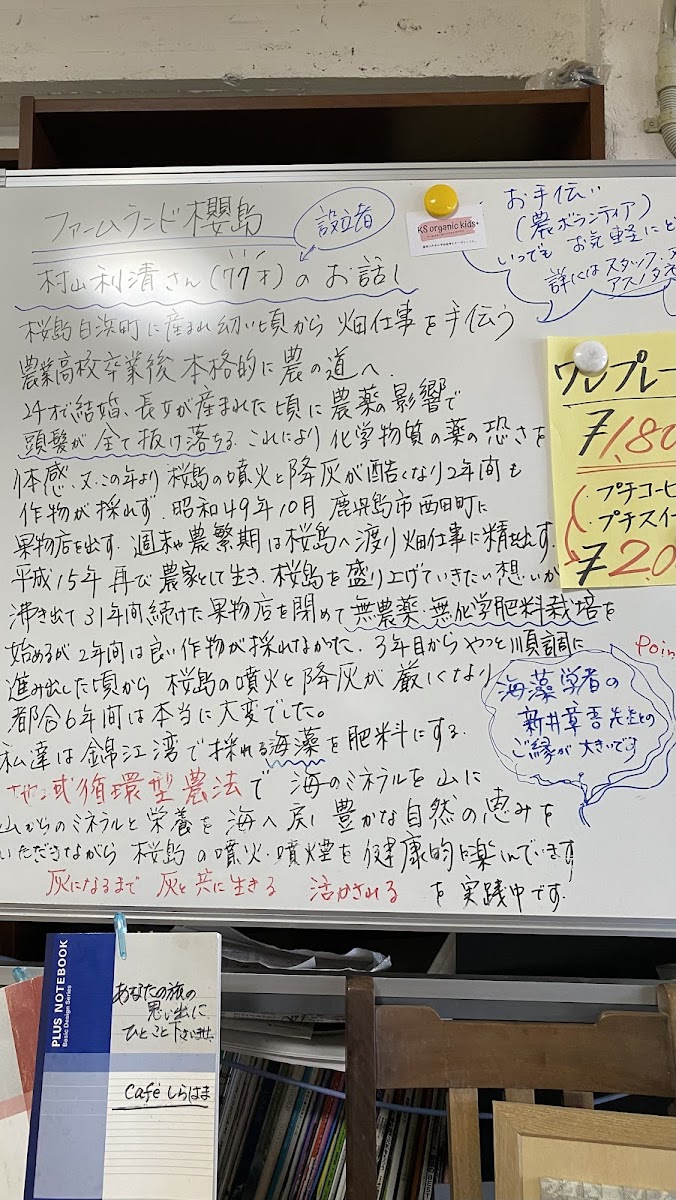 ファームランド櫻島
設立者
村山利清さん(77才)のお話し
桜島白浜町に産まれ幼い頃から 畑仕事を手伝う
農業高校卒業後 本格的に農の道へ.
24才で結婚、長女が産まれた頃に農薬の影響で
頭髪が全て抜け落ちる.これにより化学物質の薬の恐さを
体感.又この年より桜島の噴火と降灰が酷くなり2年間も
作物が採れず.昭和49年10月 鹿児島市西田町に
果物店を出す.週末や農繁期は桜島へ渡り畑仕事に精を出す.
平成15年 再び農家として生き.桜島を盛り上げていきたい想いが
沸き出て31年間続けた果物店を閉めて無農薬.無化学肥料栽培を
始めるが2年間は良い作物が採れなかた.3年目からやっと順調に
進み出した頃から 桜島の噴火と降灰が厳しくなり
都合6年間は本当に大変でした。
私達は錦江湾で採れる海藻を肥料にする.
域循環型農法で 海のミネラルを山に
山からのミネラルと栄養を海へ戻し豊かな自然の恵みを
いただきながら 桜島の噴火.噴煙を健康的に楽しんでいます
灰になるまで 灰と共に生きる 活かされる を実践中です.
KS organic kids+
お手伝い
(農ボランティア)
いつでも お気軽にど
詳しくは スタッフ.
ワンプレー
¥1,80
・プチコーヒ
・プチスイー
¥2,0
Poin
海藻学者の
新井章吾先生との
ご縁が大きいです
PLUS NOTEBOOK
Basic Design Series
あなたの旅の
思い出に
ひとこと下さいませ.
Café しらはま